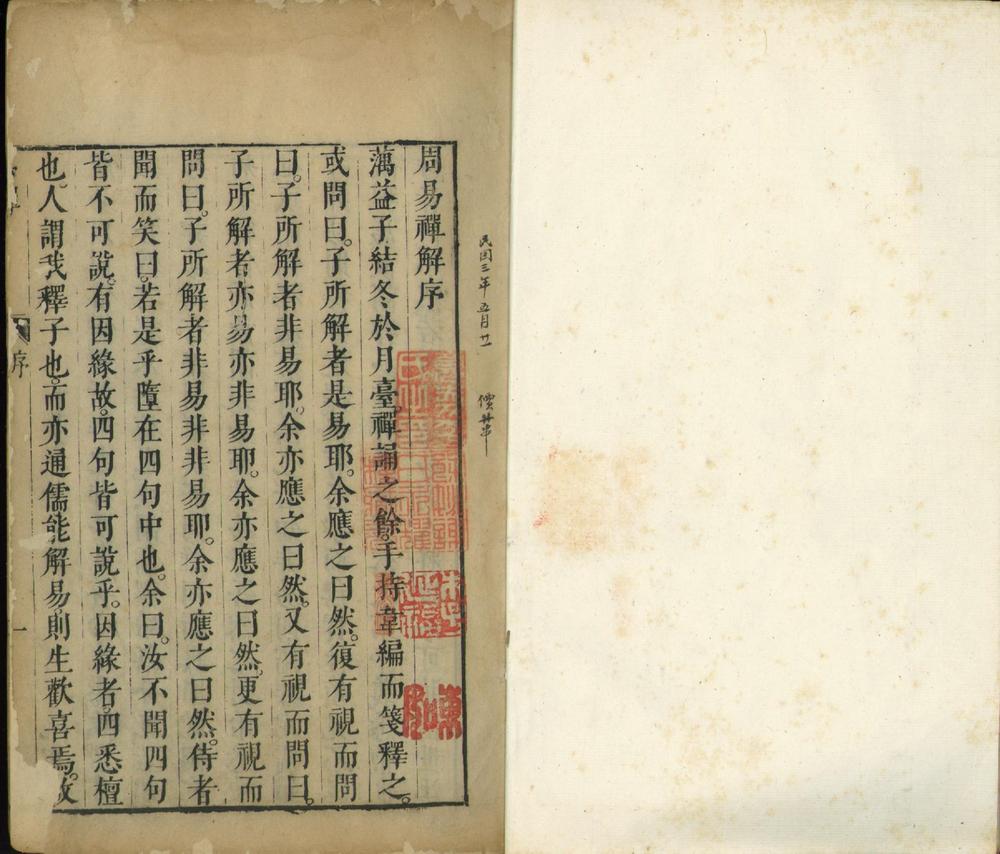 民国三年五月廿一
價廿串
周易禪解序
蕅益子結冬於月臺。禪誦之餘。手持韋編而箋釋之。
或問曰。子所解者是易耶。余應之曰然。復有視而問
曰。子所解者非易耶。余亦應之曰然。又有視而問曰。
子所解者亦易亦非易耶。余亦應之曰然。更有視而
問曰。子所解者非易非非易耶。余亦應之曰然。侍者
聞而笑曰。若是乎墮在四句中也。余曰。汝不聞四句
皆不可說。有因緣故。四句皆可說乎。因緣者。四悉檀
也。人謂我釋子也。而亦通儒能解易。則生歡喜焉。故
序 一